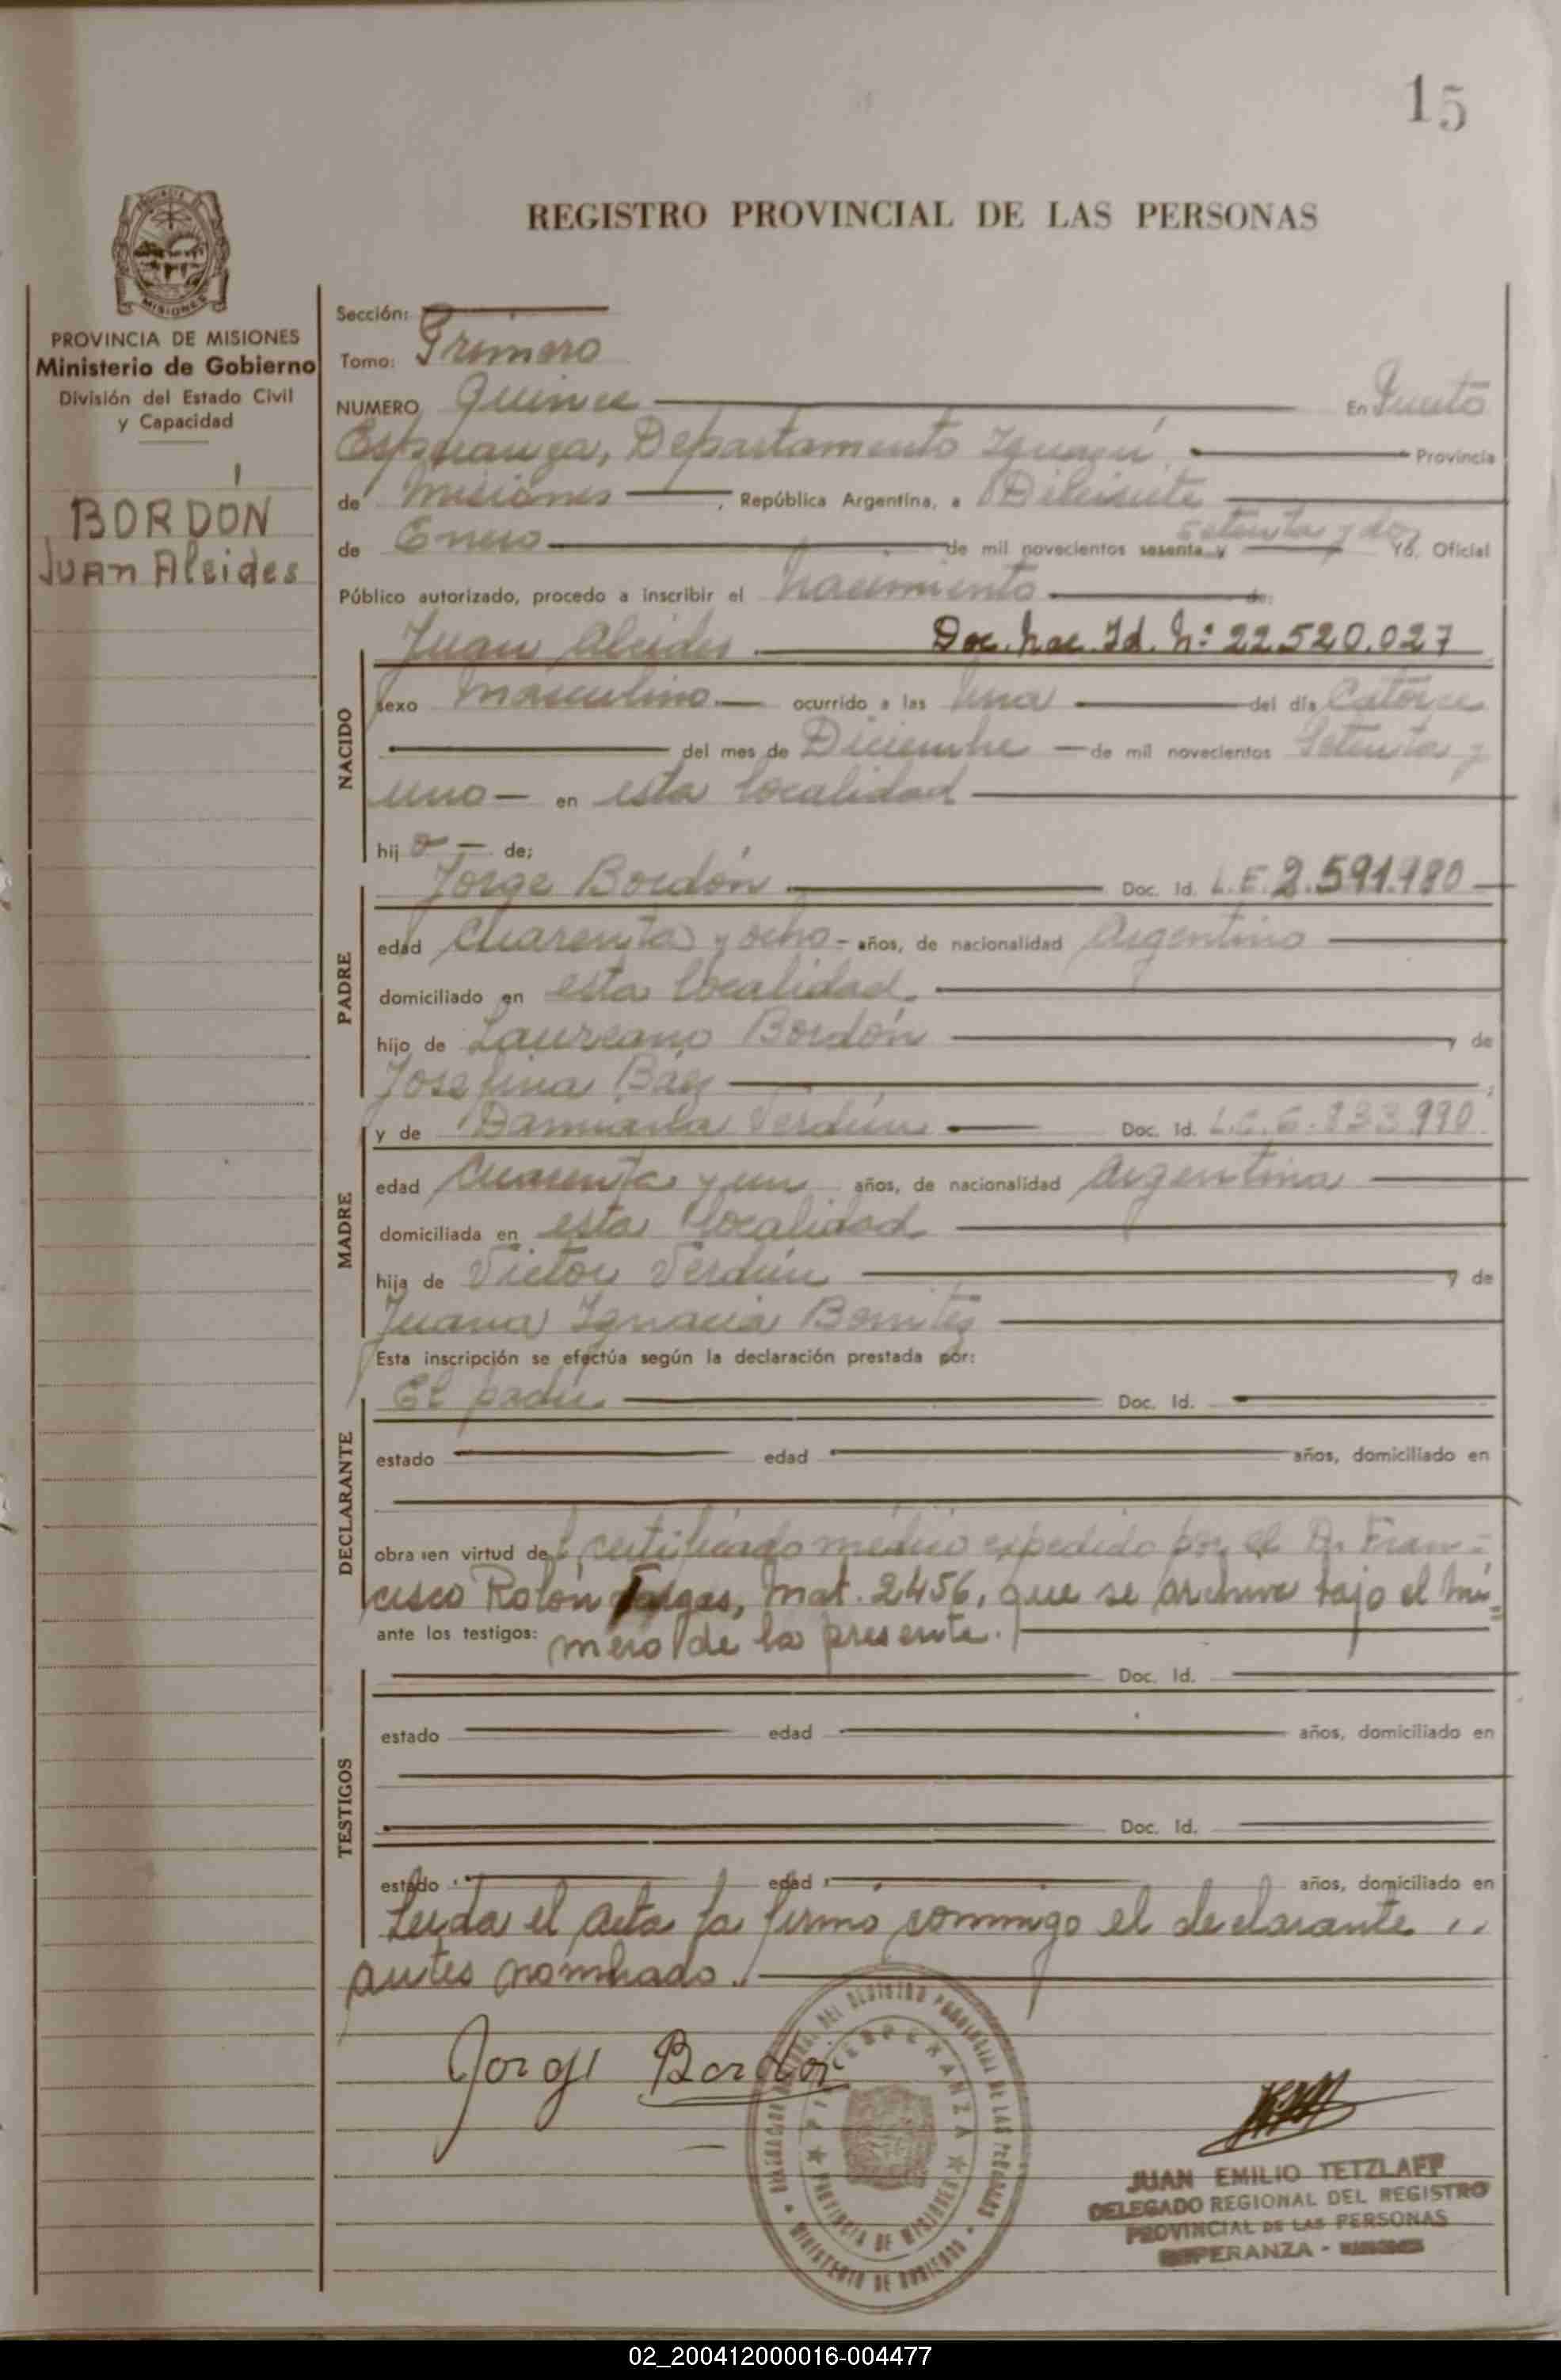 15
REGISTRO PROVINCIAL DE LAS PERSONAS
MISIONES
PROVINCIA DE MISIONES
Ministerio de Gobierno
División del Estado Civil
y Capacidad
BORDÓN
Juan Alcides
Sección:
Tomo: Primero
NUMERO Quince En Puerto
Esperanza, Departamento Iguazú, Provincia
de Misiones, República Argentina, a Diecisiete
de Enero de mil novecientos sesenta y setenta y dos Yo, Oficial
Público autorizado, procedo a inscribir el nacimiento de:
Juan Alcides Doc. Nac. Id. Nº 22.520.027
NACIDO
sexo masculino ocurrido a las una del día Catorce
del mes de Diciembre de mil novecientos Setenta y
uno en esta localidad
hij o de;
PADRE
Jorge Bordón Doc. Id. L.E. 2.591.980
edad Cuarenta y ocho años, de nacionalidad Argentino
domiciliado en esta localidad.
hijo de Laureano Bordón y de
Josefina Báez
MADRE
y de Damiana Verdún Doc. Id. L.C. 6.833.990
edad Cuarenta y un años, de nacionalidad Argentina
domiciliada en esta localidad
hija de Victor Verdún y de
Juana Ignacia Benitez
Esta inscripción se efectúa según la declaración prestada por:
DECLARANTE
El padre Doc. Id.
estado edad años, domiciliado en
obra en virtud del certificado médico expedido por el Dr. Fran=
cisco Rolón Fargas, Mat. 2456, que se archiva bajo el nú=
ante los testigos: mero de la presente.
TESTIGOS
Doc. Id.
estado edad años, domiciliado en
Doc. Id.
estado edad años, domiciliado en
Leida el acta la firma conmigo el declarante
antes nombrado.
Jorge Bordon
REGISTRO PROVINCIAL DE LAS PERSONAS
ESPERANZA
PROVINCIA DE MISIONES
MINISTERIO DE GOBIERNO
JUAN EMILIO TETZLAFF
DELEGADO REGIONAL DEL REGISTRO
PROVINCIAL DE LAS PERSONAS
ESPERANZA - MISIONES
02_200412000016-004477